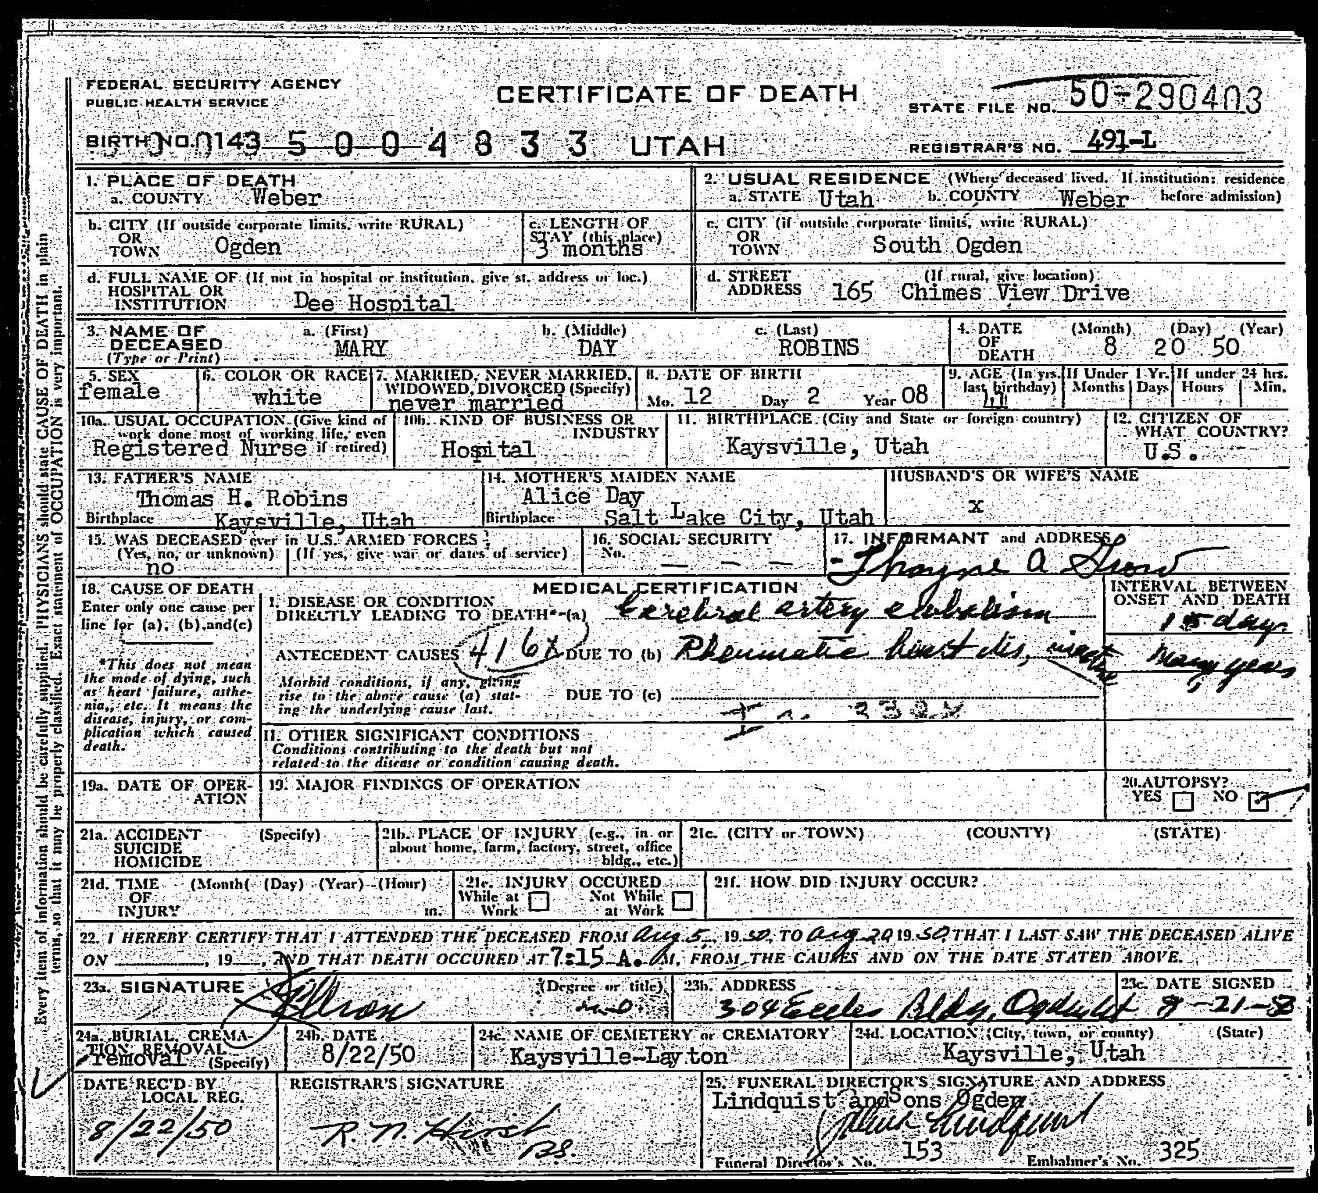 FEDERAL SECURITY AGENCY
PUBLIC HEALTH SERVICE
CERTIFICATE OF DEATH
STATE FILE NO. 50-290403
BIRTH NO. 143 5004833 UTAH
REGISTRAR'S NO. 491-L
1. PLACE OF DEATH
a. COUNTY Weber
2. USUAL RESIDENCE (Where deceased lived. If institution: residence before admission)
a. STATE Utah b. COUNTY Weber
b. CITY (If outside corporate limits, write RURAL)
OR
TOWN Ogden
c. LENGTH OF
STAY (this place)
3 months
c. CITY (if outside corporate limits, write RURAL)
OR
TOWN South Ogden
d. FULL NAME OF (If not in hospital or institution, give st. address or loc.)
HOSPITAL OR
INSTITUTION Dee Hospital
d. STREET (If rural, give location)
ADDRESS 165 Chimes View Drive
3. NAME OF
DECEASED
(Type or Print)
a. (First) b. (Middle) c. (Last)
MARY DAY ROBINS
4. DATE
OF
DEATH
(Month) (Day) (Year)
8 20 50
5. SEX
female
6. COLOR OR RACE
white
7. MARRIED, NEVER MARRIED,
WIDOWED, DIVORCED (Specify)
never married
8. DATE OF BIRTH
Mo. 12 Day 2 Year 08
9. AGE (In yrs. last birthday)
41
If Under 1 Yr.
Months Days
If under 24 hrs.
Hours Min.
10a. USUAL OCCUPATION (Give kind of
work done most of working life, even
if retired)
Registered Nurse
10b. KIND OF BUSINESS OR
INDUSTRY
Hospital
11. BIRTHPLACE (City and State or foreign country)
Kaysville, Utah
12. CITIZEN OF
WHAT COUNTRY?
U.S.
13. FATHER'S NAME
Thomas H. Robins
Birthplace Kaysville, Utah
14. MOTHER'S MAIDEN NAME
Alice Day
Birthplace Salt Lake City, Utah
HUSBAND'S OR WIFE'S NAME
x
15. WAS DECEASED ever in U.S. ARMED FORCES
(Yes, no, or unknown) (If yes, give war or dates of service)
no
16. SOCIAL SECURITY
No. — — —
17. INFORMANT and ADDRESS
Thayne A
18. CAUSE OF DEATH
Enter only one cause per
line for (a), (b), and (c)
*This does not mean
the mode of dying, such
as heart failure, asthe-
nia, etc. It means the
disease, injury, or com-
plication which caused
death.
MEDICAL CERTIFICATION
I. DISEASE OR CONDITION
DIRECTLY LEADING TO DEATH*-(a) Cerebral artery embolism
ANTECEDENT CAUSES 416X DUE TO (b) Rheumatic heart dis, inactive
Morbid conditions, if any, giving
rise to the above cause (a) stat-
ing the underlying cause last.
DUE TO (c)
INTERVAL BETWEEN
ONSET AND DEATH
15 day.
many years
II. OTHER SIGNIFICANT CONDITIONS
Conditions contributing to the death but not
related to the disease or condition causing death.
19a. DATE OF OPER-
ATION
19. MAJOR FINDINGS OF OPERATION
20. AUTOPSY?
YES NO
21a. ACCIDENT (Specify)
SUICIDE
HOMICIDE
21b. PLACE OF INJURY (e.g., in or
about home, farm, factory, street, office
bldg., etc.)
21c. (CITY or TOWN) (COUNTY) (STATE)
21d. TIME (Month( (Day) (Year) (Hour)
OF
INJURY m.
21e. INJURY OCCURED
While at Work Not While at Work
21f. HOW DID INJURY OCCUR?
22. I HEREBY CERTIFY THAT I ATTENDED THE DECEASED FROM Aug 5, 1950, TO Aug 20 1950, THAT I LAST SAW THE DECEASED ALIVE
ON , 19 , AND THAT DEATH OCCURED AT 7:15 A. M, FROM THE CAUSES AND ON THE DATE STATED ABOVE.
23a. SIGNATURE (Degree or title)
MD
23b. ADDRESS
304 Eccles Bldg, Ogden Ut
23c. DATE SIGNED
8-21-50
24a. BURIAL, CREMA-
TION REMOVAL (Specify)
removal
24b. DATE
8/22/50
24c. NAME OF CEMETERY or CREMATORY
Kaysville-Layton
24d. LOCATION (City, town, or county) (State)
Kaysville, Utah
DATE REC'D BY
LOCAL REG.
8/22/50
REGISTRAR'S SIGNATURE
R. N. Hirst
25. FUNERAL DIRECTOR'S SIGNATURE AND ADDRESS
Lindquist and Sons Ogden
Lindquist
Funeral Director's No. 153 Embalmer's No. 325
Every item of information should be carefully supplied. PHYSICIANS should state CAUSE OF DEATH in plain
terms, so that it may be properly classified. Exact statement of OCCUPATION is very important.